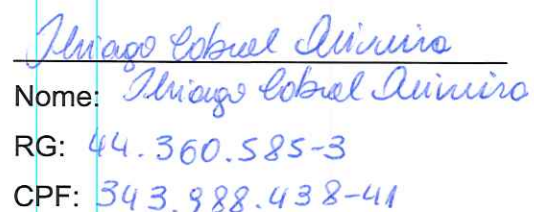 Thiago Cabral Oliveira
Nome: Thiago Cabral Oliveira
RG: 44.360.585-3
CPF: 343.988.438-41